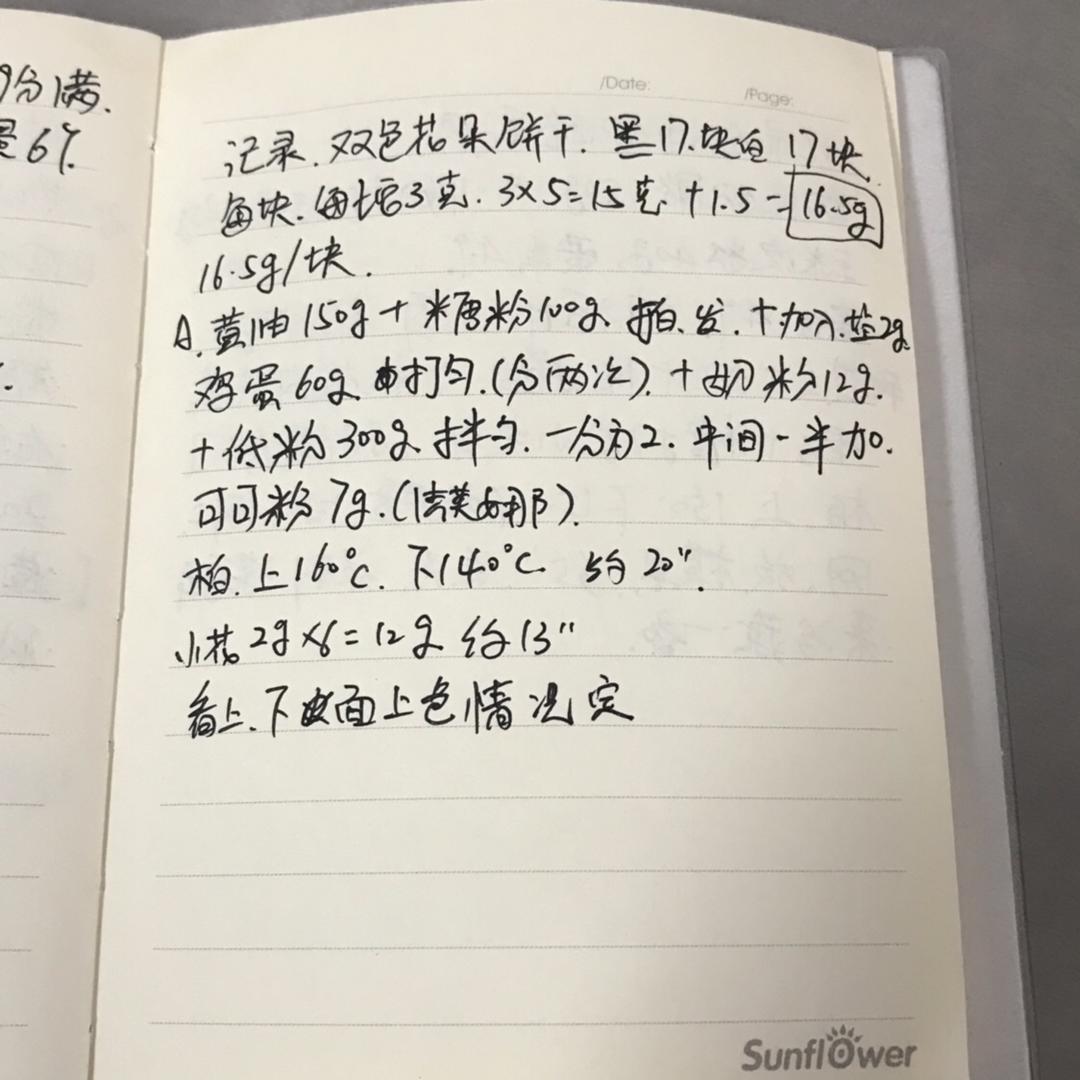 9分满.
是6%.
/Date:
/Page:
记录.双色花朵饼干.黑17.块白17块.
每块.每坨3克.3×5=15克+1.5=16.5g
16.5g/块.
A.黄油150g+糖粉100g.拍.发.+加入.盐2g.
鸡蛋60g.打匀.(分两次).+奶粉12g.
+低粉300g.拌匀.一分为2.中间一半加.
可可粉7g.(法芙娜那).
柏.上160°C.下140°C 约20".
小花2g×6=12g 约13"
看上.下皮面上色情况定
Sunflower